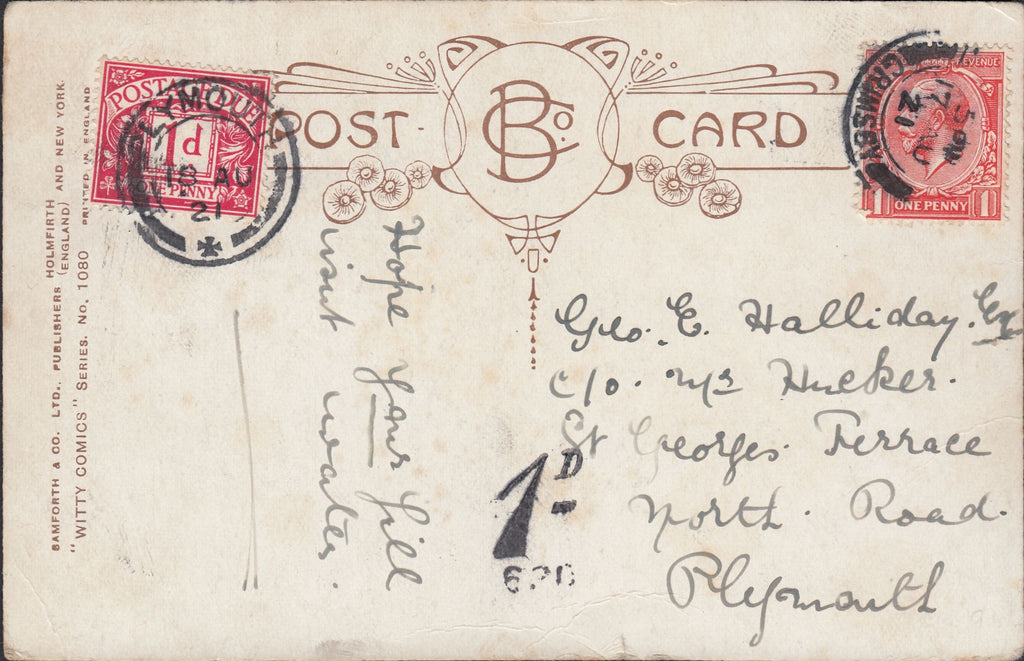 POST CARD
B Co.
POSTAGE DUE
1d
ONE PENNY
PLYMOUTH
18 AU
21
REVENUE
1 ONE PENNY 1
17 AU
21
BAMFORTH & CO. LTD., PUBLISHERS HOLMFIRTH (ENGLAND) AND NEW YORK
"WITTY COMICS" SERIES. NO. 1080
PRINTED IN ENGLAND
Hope your Jill
visit water.
Geo. E. Halliday. Esq
c/o. Mrs Hucker.
St Georges Terrace
North Road.
Plymouth
1D
620